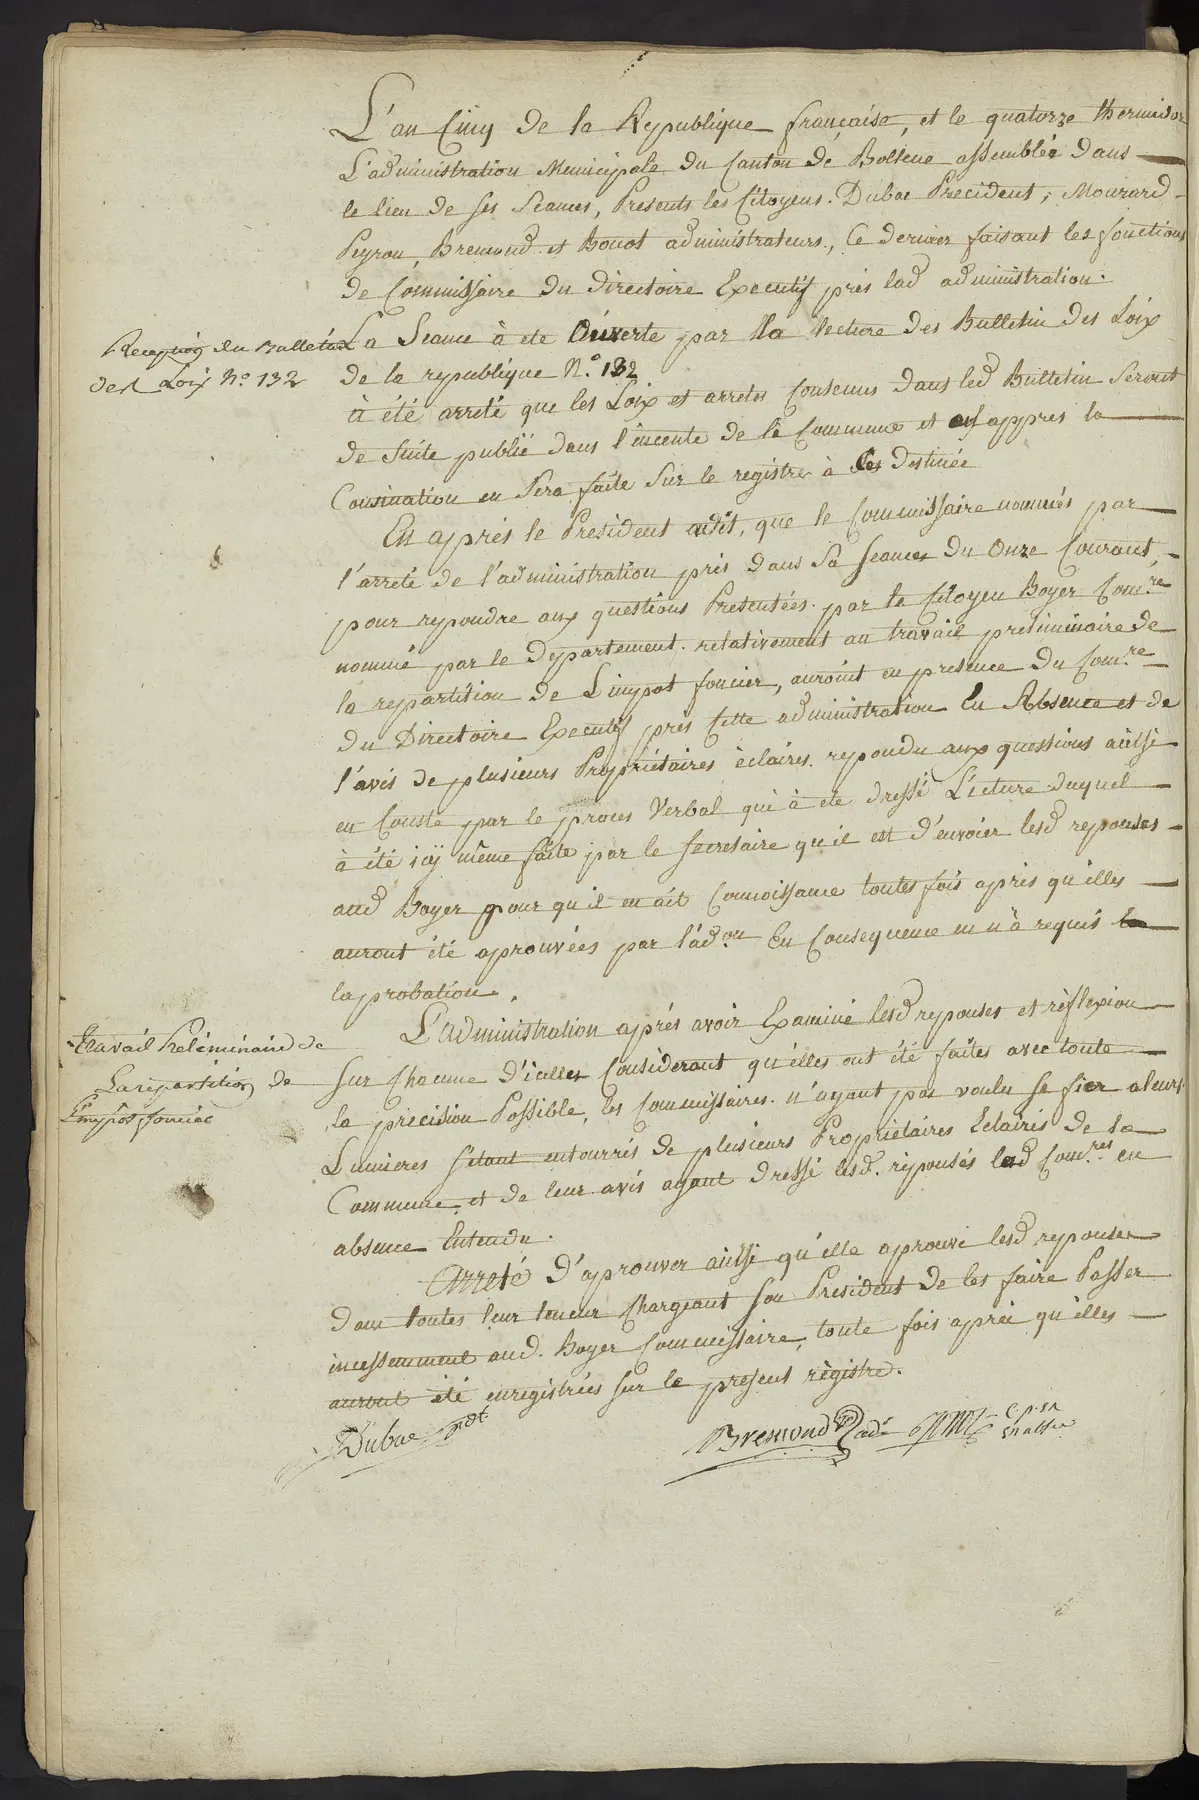 L'an Cinq de la Republique française, et le quatorze thermidor
L'administration Municipale du Canton de Bollene assemblée dans
le lieu de ses Seances, Presents les Citoyens. Dubac Precident, Mourard
Peyron, Bremond et Bouot administrateurs, Ce dernier faisant les fonctions
de Commissaire du Directoire Executif prés lad administration.
Reception du Bulletin
des Loix N.o 132
La Seance à eté Ouverte par la lecture des Bulletin des Loix
de la republique N.o 132
à été arreté que les Loix et arretes contenus dans led Bulletin Seront
de Suite publié dans l'inceinte de la Commune et appres la
en Sera faite Sur le registre à ce destinée
En aprés le President a dit, que le Commissaire nommés par
l'arreté de l'administration pris dans Sa Seance du Onze Courant
pour repondre aux questions Presentées par le Citoyen Boyer Com.re
nommé par le Departement. relativement au travail preliminaire de
la repartition de L'impot foncier, auroint en presence du Com.re
du Directoire Executif prés Cette administration En Absence et de
l'avis de plusieurs Propriétaires éclaires. repondu aux questions aussi
en Conste par le proces Verbal qui à eté dressé Lecture duquel
à été icy même faite par le secretaire qu'il est d'envoier lesd reponses
aud Boyer pour qu'il en ait Connoissance toutes fois aprés qu'elles
auront été aprouvées par l'ad.on En Consequence en n'a requis
laprobation.
Travail Preleminaire de
La repartition de
L'impos foncier
L'administration aprés avoir Examiné lesd reponses et réflexion
Sur Chacune d'icelles Considerant qu'elles ont été faites avec toute
la précision Possible, les Commissaires. n'ayant pas voulu se fier a leurs
Lumieres s'etant entourrés de plusieurs Propriétaires Eclairés de la
Commune, et de leur avis ayant dressé lesd. réponsés led Com.res en
absence Entendu.
Arreté D'aprouver aussi qu'elle aprouve lesd reponses
dans toutes leur teneur Chargeant son President de les faire Passer
incessamment aud. Boyer Commissaire, toute fois aprés qu'elles
auront été enregistrées sur le present régistre.
Dubac pdt
Bremond ade